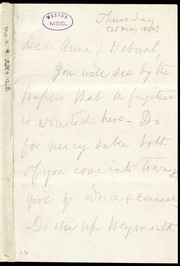 WESTON
MSS.
Thursday
[25 May 1854]
Dear Anne & Deborah,
You will see by the
papers that a fugitive
is arrested here. Do
for mercy sake both
of you come into town &
give yr advice & counsel
Do stir up Weymouth